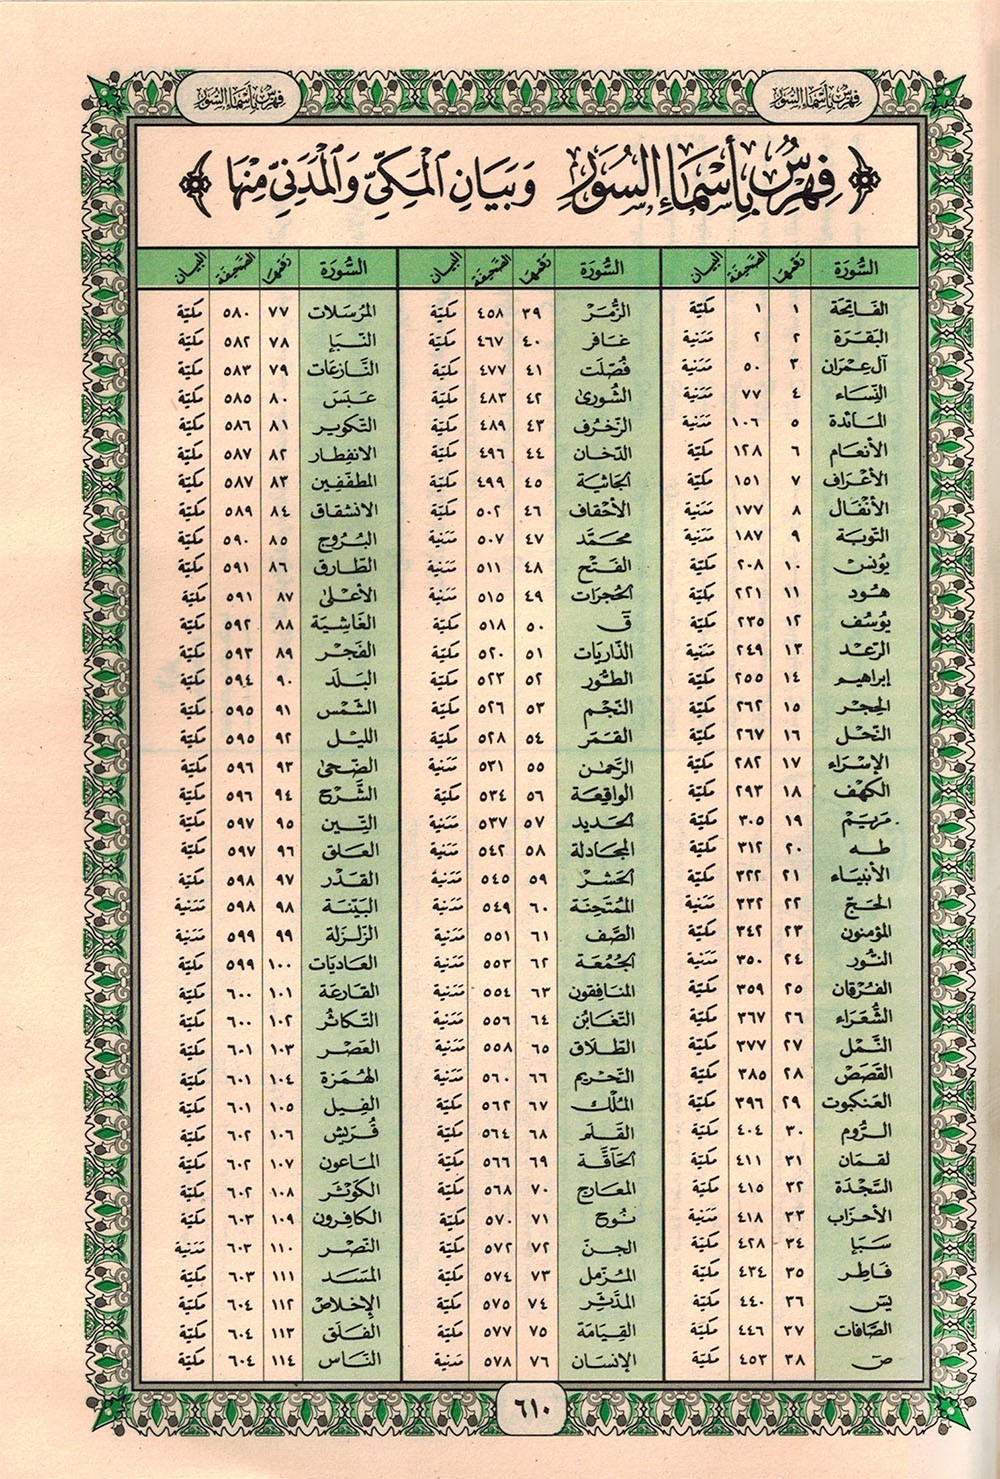 فِهْرِسُ بِأَسْمَاءِ السُّوَر
فِهْرِسُ بِأَسْمَاءِ السُّوَر
فِهْرِسُ بِأَسْمَاءِ السُّوَرِ وَبَيَانِ الْمَكِّيِّ وَالْمَدَنِيِّ مِنْهَا
السُّورَة رقمها الصحيفة البيان
الفَاتِحَة ١ ١ مكيّة
البَقَرَة ٢ ٢ مَدَنية
آل عِمْرَان ٣ ٥٠ مَدَنية
النِّسَاء ٤ ٧٧ مَدَنية
المَائدة ٥ ١٠٦ مَدَنية
الأنعَام ٦ ١٢٨ مكيّة
الأعْرَاف ٧ ١٥١ مكيّة
الأنْفَال ٨ ١٧٧ مَدَنية
التّوبَة ٩ ١٨٧ مَدَنية
يُونُس ١٠ ٢٠٨ مكيّة
هُود ١١ ٢٢١ مكيّة
يُوسُف ١٢ ٢٣٥ مكيّة
الرّعْد ١٣ ٢٤٩ مَدَنية
إبراهيم ١٤ ٢٥٥ مكيّة
الحِجر ١٥ ٢٦٢ مكيّة
النّحْل ١٦ ٢٦٧ مكيّة
الإسْرَاء ١٧ ٢٨٢ مكيّة
الكهْف ١٨ ٢٩٣ مكيّة
مَريَم ١٩ ٣٠٥ مكيّة
طه ٢٠ ٣١٢ مكيّة
الأنبيَاء ٢١ ٣٢٢ مكيّة
الحَجّ ٢٢ ٣٣٢ مَدَنية
المؤمنون ٢٣ ٣٤٢ مكيّة
النُّور ٢٤ ٣٥٠ مَدَنية
الفُرْقان ٢٥ ٣٥٩ مكيّة
الشُّعَرَاء ٢٦ ٣٦٧ مكيّة
النَّمْل ٢٧ ٣٧٧ مكيّة
القَصَص ٢٨ ٣٨٥ مكيّة
العَنكبوت ٢٩ ٣٩٦ مكيّة
الرُّوم ٣٠ ٤٠٤ مكيّة
لقمَان ٣١ ٤١١ مكيّة
السَّجْدَة ٣٢ ٤١٥ مكيّة
الأحزَاب ٣٣ ٤١٨ مَدَنية
سَبَإ ٣٤ ٤٢٨ مكيّة
فَاطِر ٣٥ ٤٣٤ مكيّة
يس ٣٦ ٤٤٠ مكيّة
الصَّافات ٣٧ ٤٤٦ مكيّة
صَ ٣٨ ٤٥٣ مكيّة
السُّورَة رقمها الصحيفة البيان
الزُّمَر ٣٩ ٤٥٨ مكيّة
غَافر ٤٠ ٤٦٧ مكيّة
فُصّلَت ٤١ ٤٧٧ مكيّة
الشّورىٰ ٤٢ ٤٨٣ مكيّة
الزّخرُف ٤٣ ٤٨٩ مكيّة
الدّخان ٤٤ ٤٩٦ مكيّة
الجَاثية ٤٥ ٤٩٩ مكيّة
الأحْقاف ٤٦ ٥٠٢ مكيّة
محمَّد ٤٧ ٥٠٧ مَدَنية
الفَتْح ٤٨ ٥١١ مَدَنية
الحُجرَات ٤٩ ٥١٥ مَدَنية
قَ ٥٠ ٥١٨ مكيّة
الذّاريَات ٥١ ٥٢٠ مكيّة
الطُّور ٥٢ ٥٢٣ مكيّة
النّجْم ٥٣ ٥٢٦ مكيّة
القَمَر ٥٤ ٥٢٨ مكيّة
الرَّحمٰن ٥٥ ٥٣١ مَدَنية
الوَاقِعَة ٥٦ ٥٣٤ مكيّة
الحَديد ٥٧ ٥٣٧ مَدَنية
المجَادلة ٥٨ ٥٤٢ مَدَنية
الحَشْر ٥٩ ٥٤٥ مَدَنية
المُمتَحِنَة ٦٠ ٥٤٩ مَدَنية
الصَّف ٦١ ٥٥١ مَدَنية
الجُمُعَة ٦٢ ٥٥٣ مَدَنية
المنَافِقون ٦٣ ٥٥٤ مَدَنية
التّغَابُن ٦٤ ٥٥٦ مَدَنية
الطّلَاق ٦٥ ٥٥٨ مَدَنية
التّحْريم ٦٦ ٥٦٠ مَدَنية
المُلْك ٦٧ ٥٦٢ مكيّة
القَلَم ٦٨ ٥٦٤ مكيّة
الحَاقَّة ٦٩ ٥٦٦ مكيّة
المعَارج ٧٠ ٥٦٨ مكيّة
نُوح ٧١ ٥٧٠ مكيّة
الجنّ ٧٢ ٥٧٢ مكيّة
المُزمل ٧٣ ٥٧٤ مكيّة
المدّثر ٧٤ ٥٧٥ مكيّة
القِيَامَة ٧٥ ٥٧٧ مكيّة
الإنسَان ٧٦ ٥٧٨ مَدَنية
السُّورَة رقمها الصحيفة البيان
المُرسَلات ٧٧ ٥٨٠ مكيّة
النّبَإ ٧٨ ٥٨٢ مكيّة
النّازعَات ٧٩ ٥٨٣ مكيّة
عَبَسَ ٨٠ ٥٨٥ مكيّة
التّكوير ٨١ ٥٨٦ مكيّة
الانفِطار ٨٢ ٥٨٧ مكيّة
المطفّفِين ٨٣ ٥٨٧ مكيّة
الانشقاق ٨٤ ٥٨٩ مكيّة
البُروج ٨٥ ٥٩٠ مكيّة
الطّارق ٨٦ ٥٩١ مكيّة
الأعْلىٰ ٨٧ ٥٩١ مكيّة
الغَاشِيَة ٨٨ ٥٩٢ مكيّة
الفَجْر ٨٩ ٥٩٣ مكيّة
البَلَد ٩٠ ٥٩٤ مكيّة
الشّمْس ٩١ ٥٩٥ مكيّة
الليْل ٩٢ ٥٩٥ مكيّة
الضّحىٰ ٩٣ ٥٩٦ مكيّة
الشَّرْح ٩٤ ٥٩٦ مكيّة
التِّين ٩٥ ٥٩٧ مكيّة
العَلق ٩٦ ٥٩٧ مكيّة
القَدْر ٩٧ ٥٩٨ مكيّة
البَيّنَة ٩٨ ٥٩٨ مَدَنية
الزّلزَلة ٩٩ ٥٩٩ مَدَنية
العَاديَات ١٠٠ ٥٩٩ مكيّة
القَارعَة ١٠١ ٦٠٠ مكيّة
التّكاثُر ١٠٢ ٦٠٠ مكيّة
العَصْر ١٠٣ ٦٠١ مكيّة
الهُمَزة ١٠٤ ٦٠١ مكيّة
الفِيل ١٠٥ ٦٠١ مكيّة
قُرَيش ١٠٦ ٦٠٢ مكيّة
المَاعون ١٠٧ ٦٠٢ مكيّة
الكَوْثَر ١٠٨ ٦٠٢ مكيّة
الكافِرون ١٠٩ ٦٠٣ مكيّة
النّصْر ١١٠ ٦٠٣ مَدَنية
المَسَد ١١١ ٦٠٣ مكيّة
الإخلاص ١١٢ ٦٠٤ مكيّة
الفَلَق ١١٣ ٦٠٤ مكيّة
النَّاس ١١٤ ٦٠٤ مكيّة
٦١٠